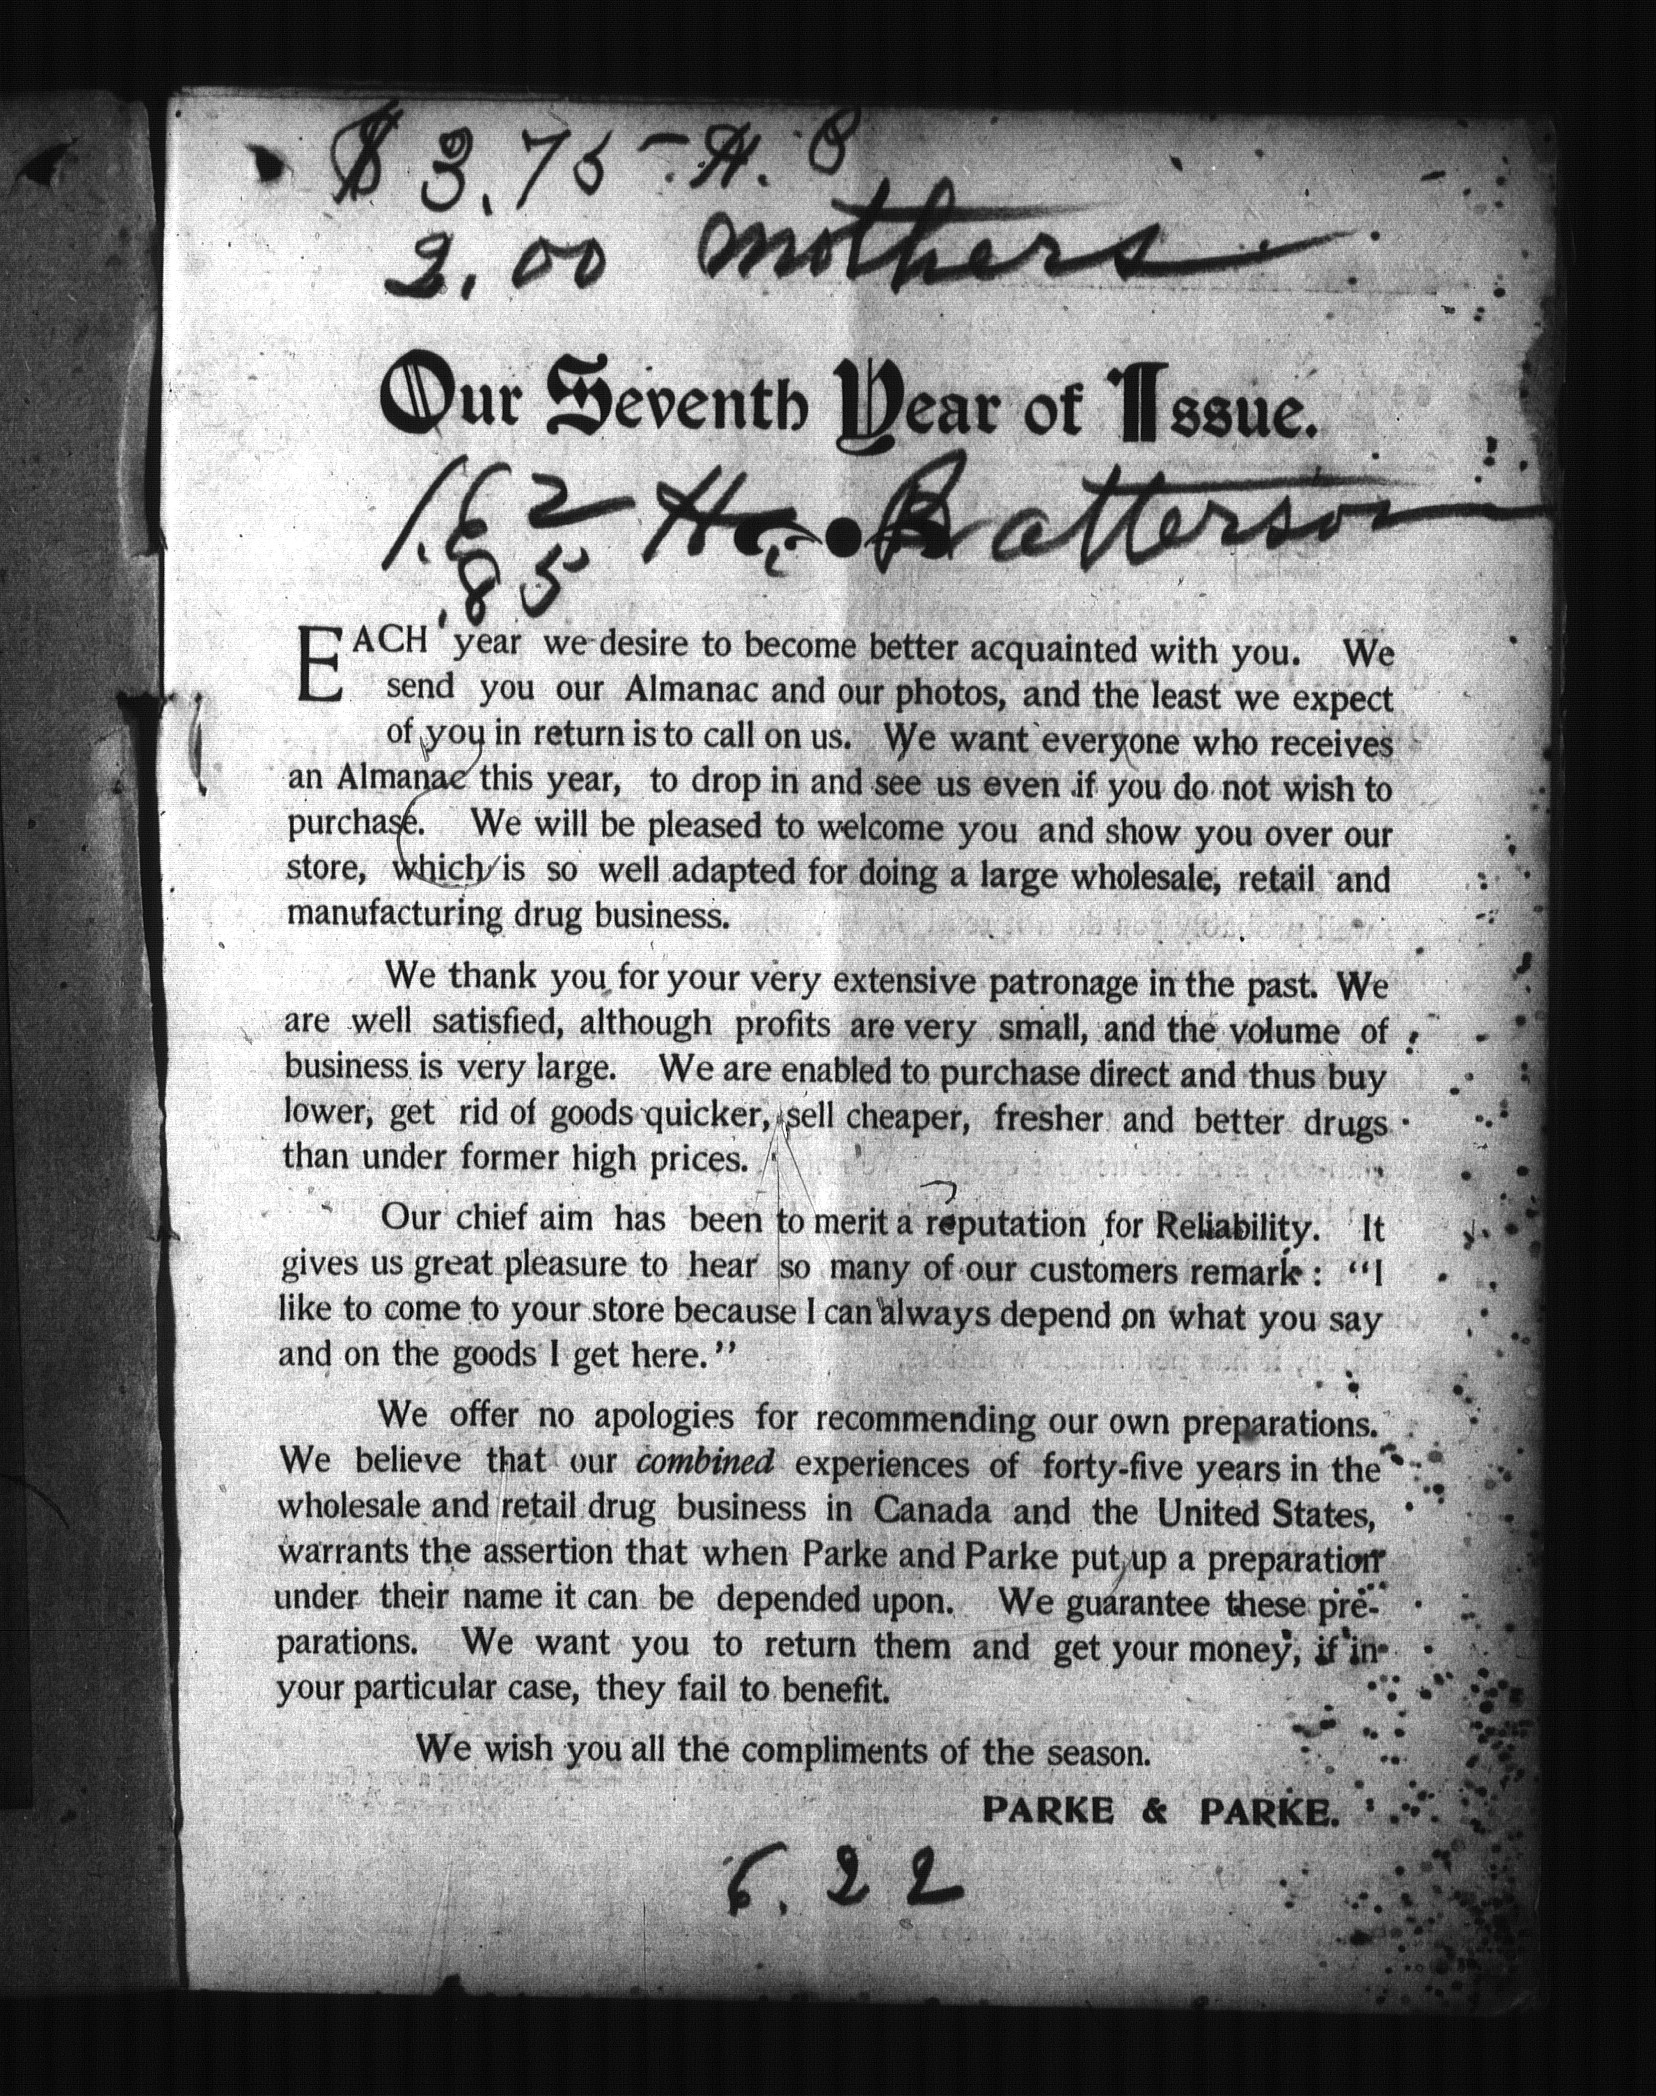 $ 3.75 - H. B
2.00 mothers
Our Seventh Year of Issue.
1.62 H. Batterson
.85
EACH year we desire to become better acquainted with you. We
send you our Almanac and our photos, and the least we expect
of you in return is to call on us. We want everyone who receives
an Almanac this year, to drop in and see us even if you do not wish to
purchase. We will be pleased to welcome you and show you over our
store, which is so well adapted for doing a large wholesale, retail and
manufacturing drug business.
We thank you for your very extensive patronage in the past. We
are well satisfied, although profits are very small, and the volume of
business is very large. We are enabled to purchase direct and thus buy
lower, get rid of goods quicker, sell cheaper, fresher and better drugs
than under former high prices.
Our chief aim has been to merit a reputation for Reliability. It
gives us great pleasure to hear so many of our customers remark: “I
like to come to your store because I can always depend on what you say
and on the goods I get here.”
We offer no apologies for recommending our own preparations.
We believe that our combined experiences of forty-five years in the
wholesale and retail drug business in Canada and the United States,
warrants the assertion that when Parke and Parke put up a preparation
under their name it can be depended upon. We guarantee these pre-
parations. We want you to return them and get your money, if in
your particular case, they fail to benefit.
We wish you all the compliments of the season.
PARKE & PARKE.
6.22